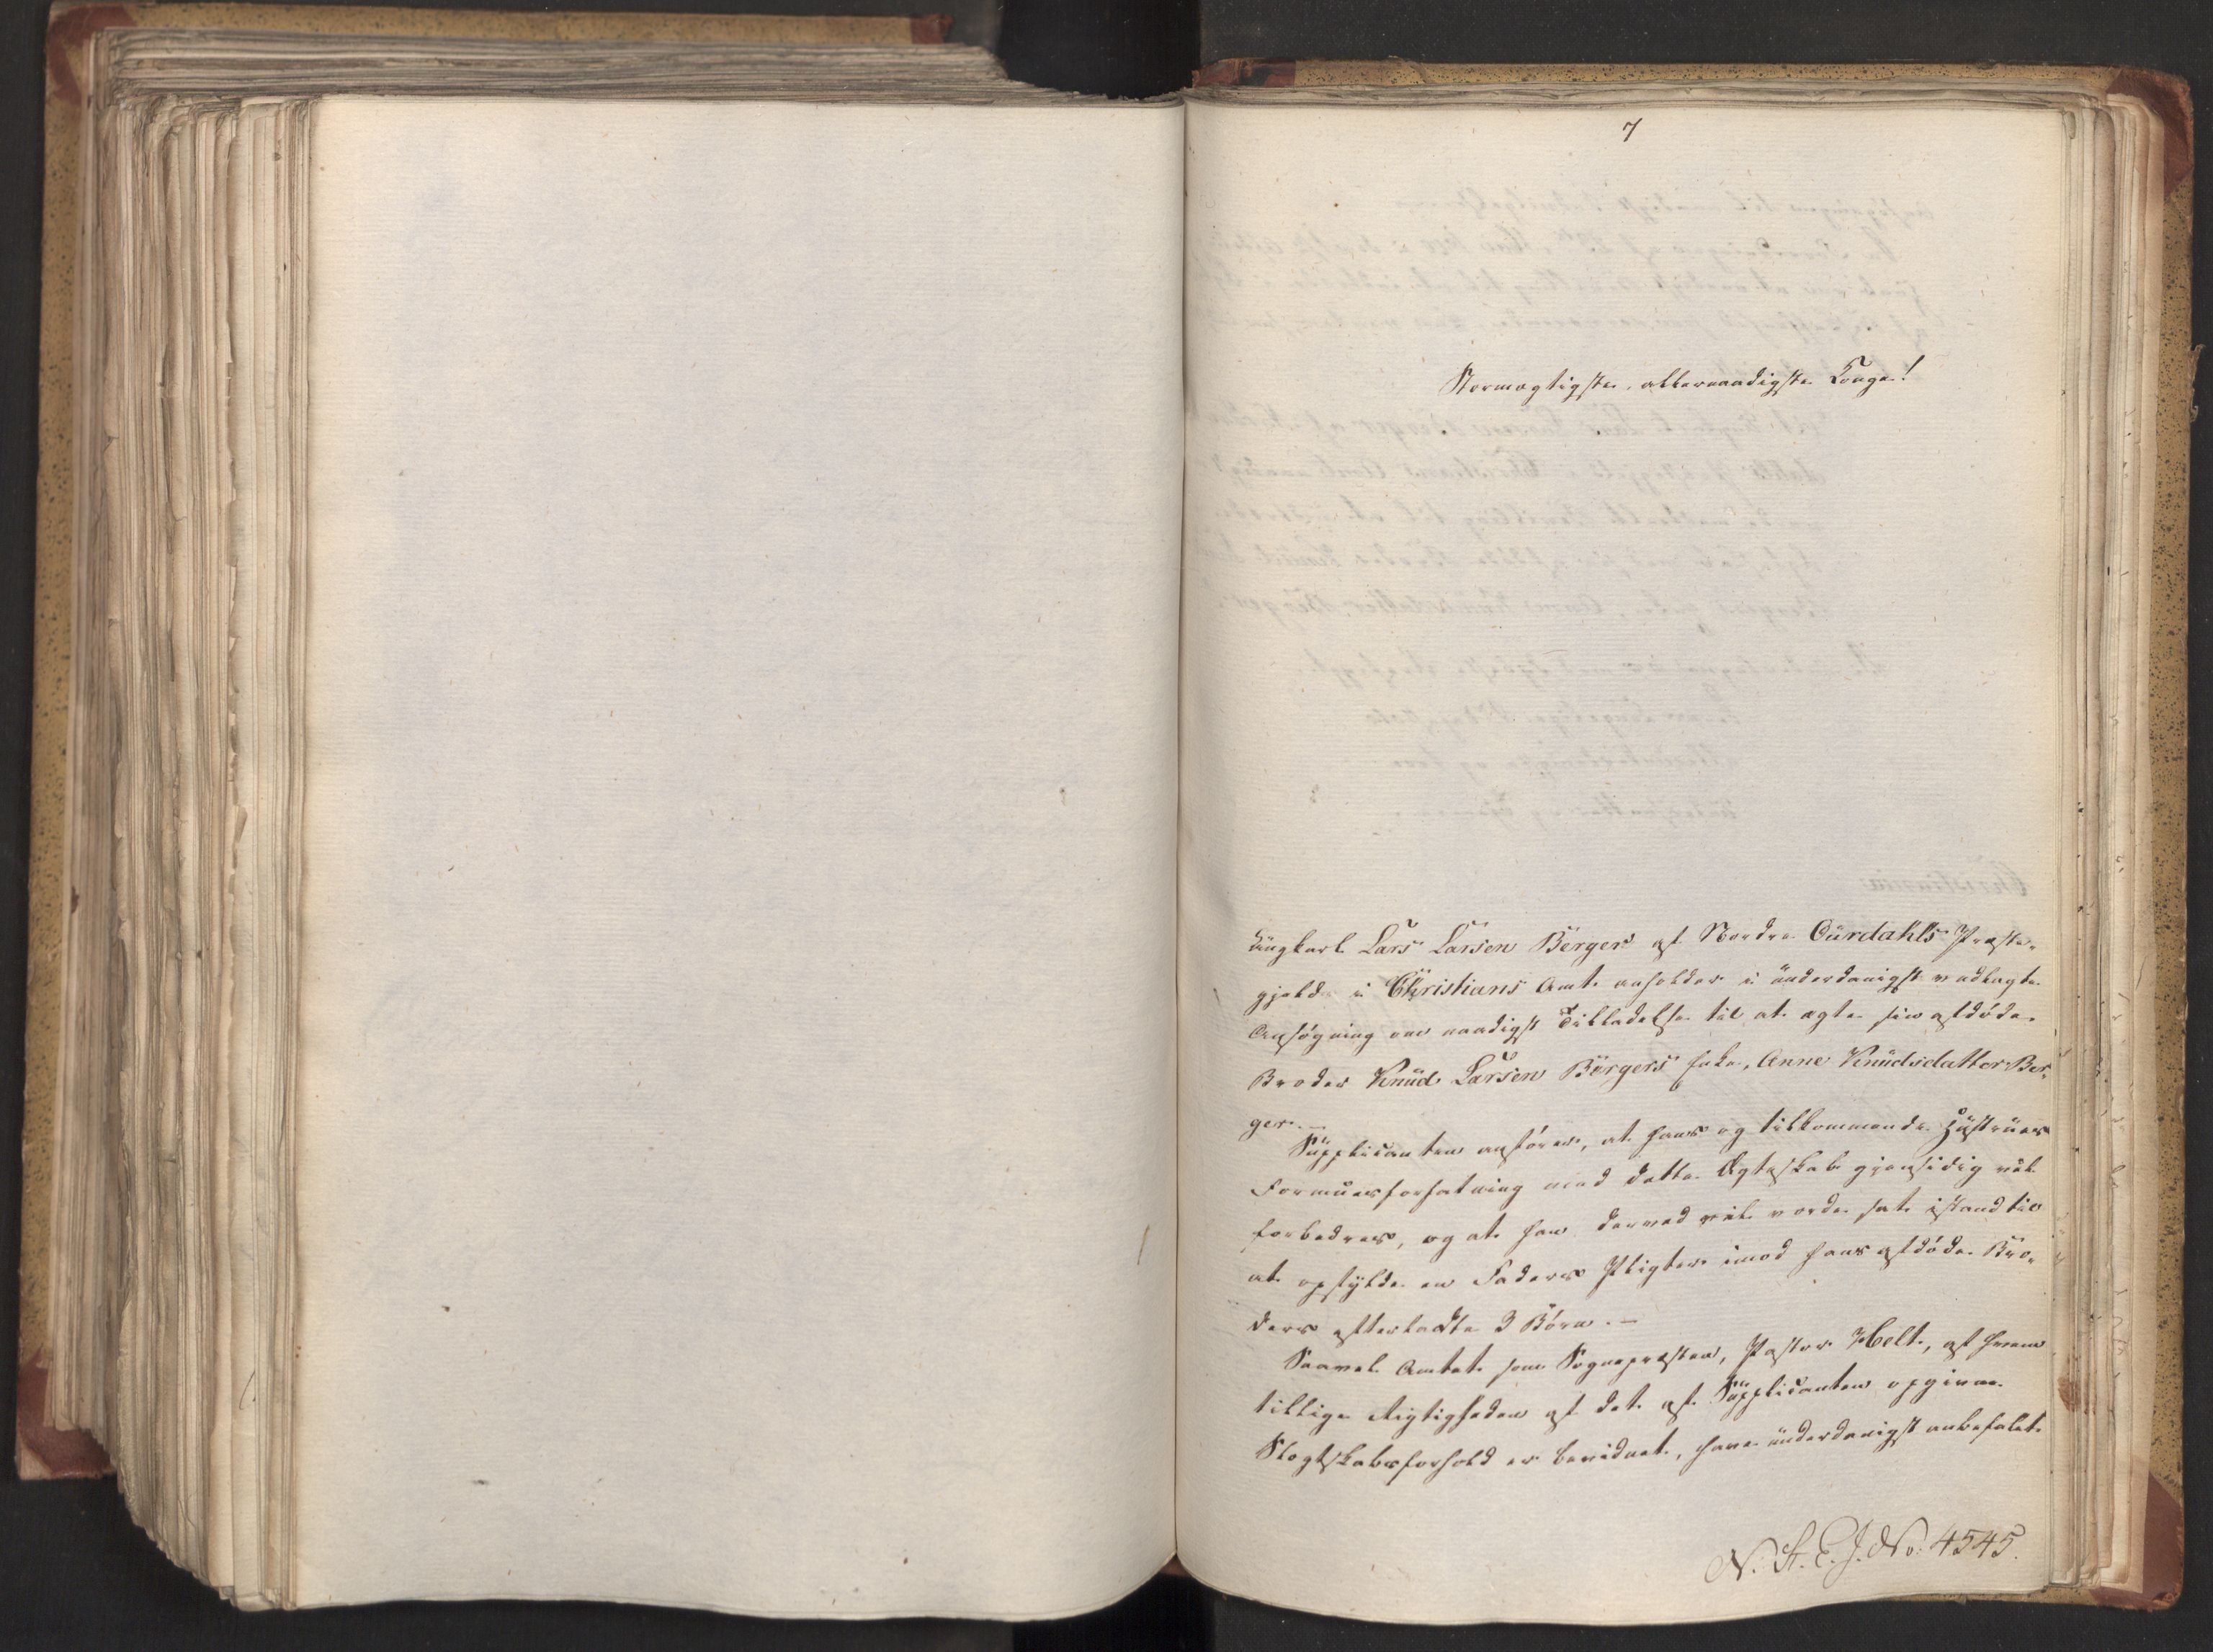 7
Stormægtigste, allernaadigste Konge!
Ungkarl Lars Larsen Berger af Nordre Aurdahls Præste-
gjeld i Christians Amt anholder i underdanigst vedlagte
Ansøgning om naadigst Tilladelse til at ægte sin afdøde
Broder Knud Larsen Bergers Enke, Anne Knudsdatter Ber-
ger.—
Supplicanten anfører, at hans og tilkommende Hustrues
Formuesforfatning ved dette Ægteskab gjensidig vil
forbedres, og at han derved vil vorde sat istand til
at opfylde en Faders Pligter imod hans afdøde Bro-
ders efterladte 3 Børn.—
Saavel Amtet som Sognepræsten, Pastor Helt, af hvem
tillige Rigtigheden af det af Supplicanten opgivne
Slægtskabsforhold er bevidnet, have underdanigst anbefalet
N. St. E. J. No: 4545.